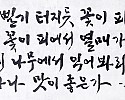 빨기 터지듯 꽃이 피
꽃이 피어서 열매가
나무에서 익어 봐라
맛이 좋은가